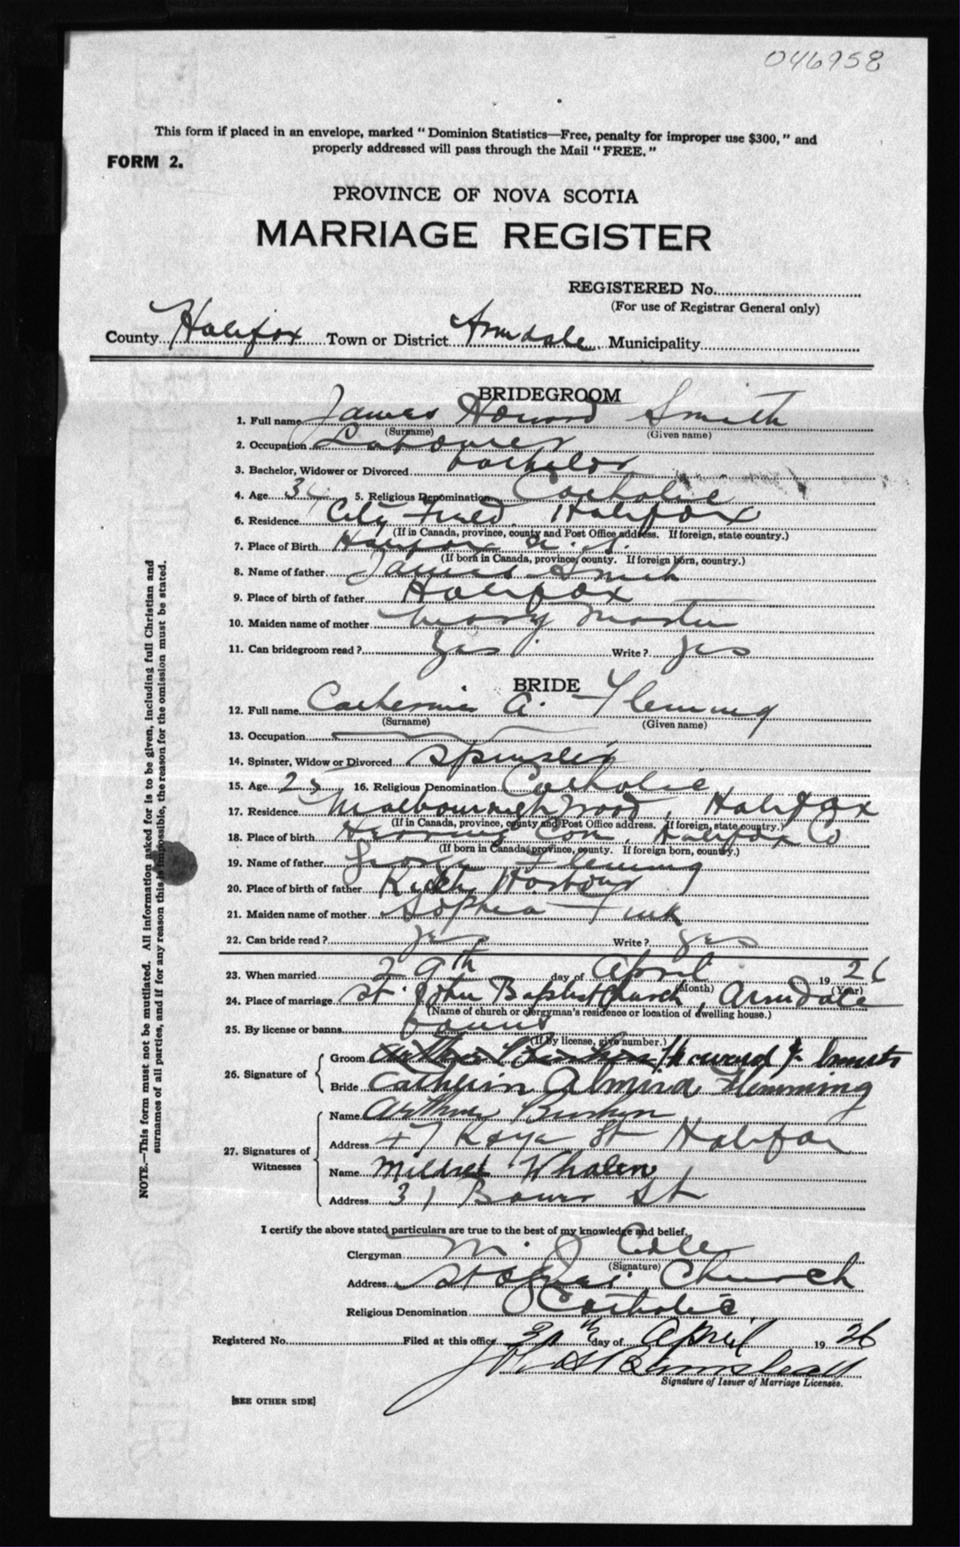 046958
This form if placed in an envelope, marked "Dominion Statistics—Free, penalty for improper use $300," and
properly addressed will pass through the Mail "FREE."
FORM 2.
PROVINCE OF NOVA SCOTIA
MARRIAGE REGISTER
REGISTERED No.
(For use of Registrar General only)
County Halifax Town or District Armdale Municipality
BRIDEGROOM
1. Full name James Howard Smith
(Surname) (Given name)
2. Occupation Labourer
3. Bachelor, Widower or Divorced bachelor
4. Age 5. Religious Denomination Catholic
6. Residence City Field Halifax
(If in Canada, province, county and Post Office address. If foreign, state country.)
7. Place of Birth Halifax N. S.
(If born in Canada, province, county. If foreign born, country.)
8. Name of father James Smith
9. Place of birth of father Halifax
10. Maiden name of mother Mary Martin
11. Can bridegroom read? Yes Write? yes
BRIDE
12. Full name Catherine A. Fleming
(Surname) (Given name)
13. Occupation
14. Spinster, Widow or Divorced Spinster
15. Age 16. Religious Denomination Catholic
17. Residence Halifax
(If in Canada, province, county and Post Office address. If foreign, state country.)
18. Place of birth Herring Cove Halifax Co
(If born in Canada, province, county. If foreign born, country.)
19. Name of father George Fleming
20. Place of birth of father Harbour
21. Maiden name of mother Sophia
22. Can bride read? yes Write? yes
23. When married 29th day of April 1926
(Month) (Year)
24. Place of marriage St. John Baptist Church, Armdale
(Name of church or clergyman's residence or location of dwelling house.)
25. By license or banns banns
(If by license, give number.)
26. Signature of
Groom Howard J. Smith
Bride Catherin Almira Flemming
27. Signatures of Witnesses
Name Arthur
Address 47 Kaye St Halifax
Name Mildred Whalen
Address 31 Bauer St
I certify the above stated particulars are true to the best of my knowledge and belief.
Clergyman M. J. Cole
(Signature)
Address St Agnes Church
Religious Denomination Catholic
Registered No. Filed at this office 30th day of April 1926
Signature of Issuer of Marriage Licenses.
[SEE OTHER SIDE]
NOTE.—This form must not be mutilated. All information asked for is to be given, including full Christian and
surnames of all parties, and if for any reason this is impossible, the reason for the omission must be stated.